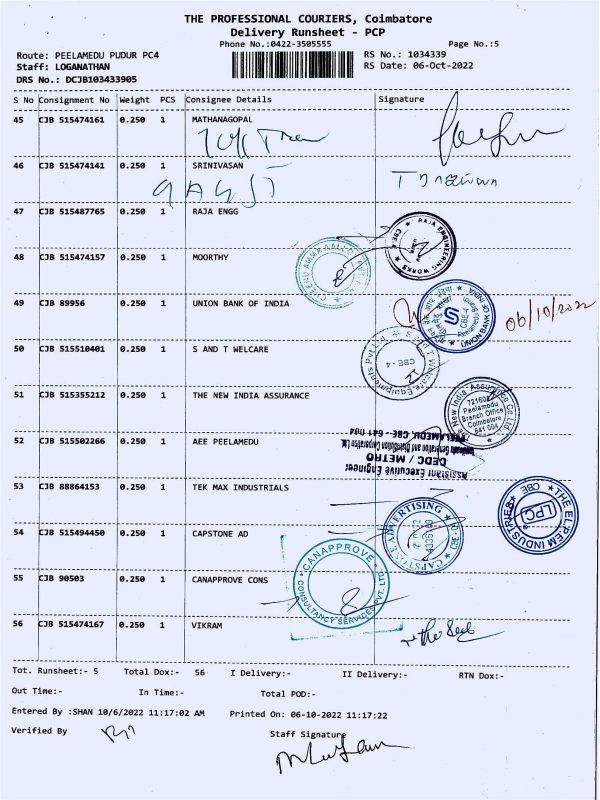 THE PROFESSIONAL COURIERS, Coimbatore
Delivery Runsheet - PCP
Phone No.:0422-3505555 Page No.:5
Route: PEELAMEDU PUDUR PC4 RS No.: 1034339
Staff: LOGANATHAN RS Date: 06-Oct-2022
DRS No.: DCJB103433905
S No Consignment No Weight PCS Consignee Details Signature
45 CJB 515474161 0.250 1 MATHANAGOPAL
46 CJB 515474141 0.250 1 SRINIVASAN
47 CJB 515487765 0.250 1 RAJA ENGG
RAJA ENGINEERING WORKS CBE-4
48 CJB 515474157 0.250 1 MOORTHY
49 CJB 89956 0.250 1 UNION BANK OF INDIA
UNION BANK OF INDIA 06/10/2022
50 CJB 515510401 0.250 1 S AND T WELCARE
S and T Welcare Equipments Pvt. Ltd. CBE-4
51 CJB 515355212 0.250 1 THE NEW INDIA ASSURANCE
New India Assurance Co Ltd
Peelamedu
Branch Office
Coimbatore
641 004
52 CJB 515502266 0.250 1 AEE PEELAMEDU
Assistant Executive Engineer
CEDC / METRO
Generation and Distribution Corporation Ltd.
PEELAMEDU, CBE- 641 004
53 CJB 88864153 0.250 1 TEK MAX INDUSTRIALS
THE ELPEM INDUSTRIES CBE
LPC
54 CJB 515494450 0.250 1 CAPSTONE AD
55 CJB 90503 0.250 1 CANAPPROVE CONS
CANAPPROVE CONSULTANCY SERVICES PVT. LTD
56 CJB 515474167 0.250 1 VIKRAM
Tot. Runsheet:- 5 Total Dox:- 56 I Delivery:- II Delivery:- RTN Dox:-
Out Time:- In Time:- Total POD:-
Entered By :SHAN 10/6/2022 11:17:02 AM Printed On: 06-10-2022 11:17:22
Verified By Staff Signature